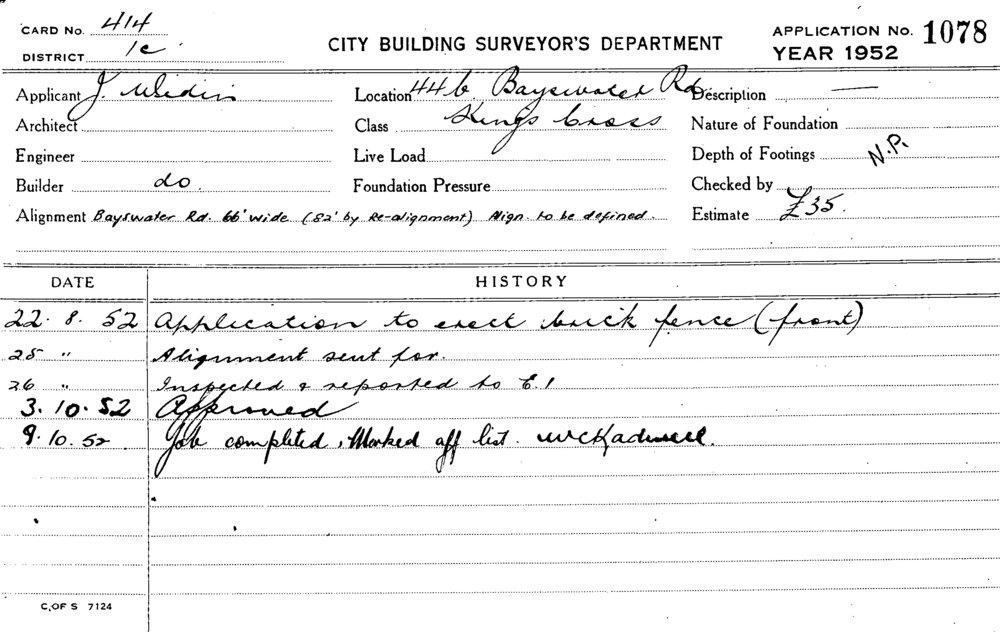 CARD No. 414
DISTRICT 1c
CITY BUILDING SURVEYOR'S DEPARTMENT
APPLICATION No. 1078
YEAR 1952
Applicant J.
Location 44b Bayswater Rd
Kings Cross
Description —
Architect
Class
Nature of Foundation
Engineer
Live Load
Depth of Footings N.P.
Builder do.
Foundation Pressure
Checked by
Alignment Bayswater Rd. 66' wide (82' by Re-alignment) Align. to be defined.
Estimate £35.
DATE HISTORY
22. 8. 52 Application to erect brick fence (front)
25 " Alignment sent for.
26 " Inspected & reported to E.1
3. 10. 52 Approved
9. 10. 52 Job completed, Marked off list.
C. OF S 7124